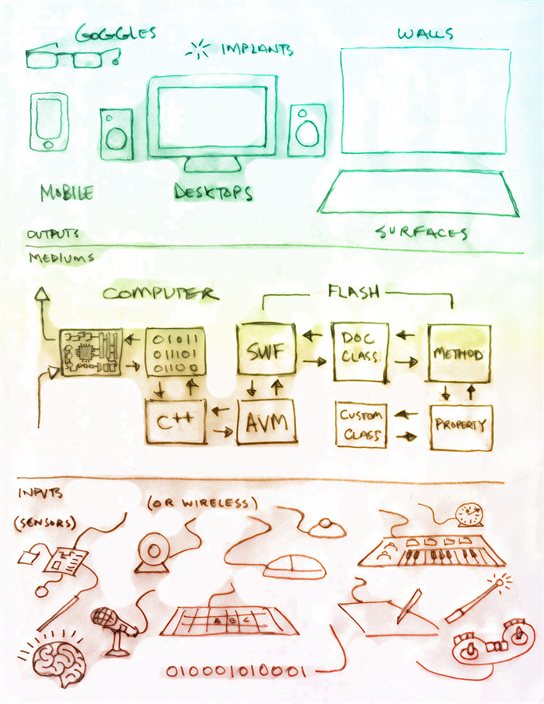 GOGGLES
IMPLANTS
WALLS
MOBILE
DESKTOPS
SURFACES
OUTPUTS
MEDIUMS
COMPUTER
FLASH
01011
011101
01100
SWF
DOC
CLASS
METHOD
C++
AVM
CUSTOM
CLASS
PROPERTY
INPUTS
(SENSORS)
(OR WIRELESS)
A B C
010001010001